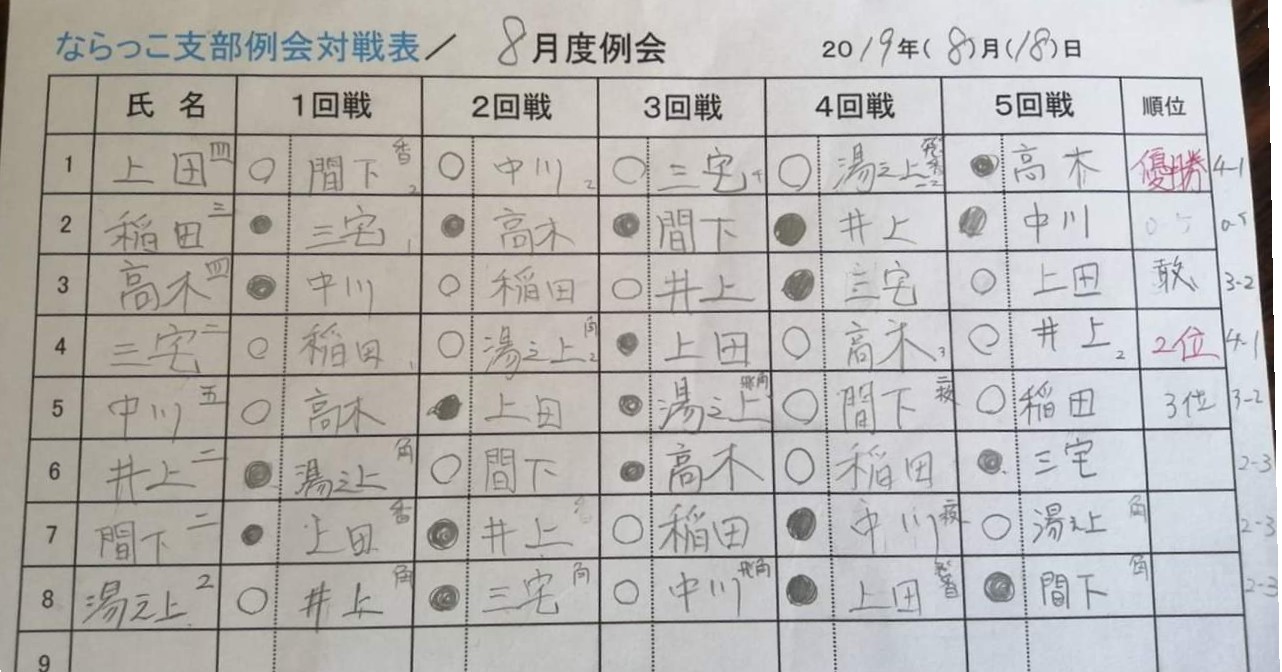 ならっこ支部例会対戦表/ 8月度例会 2019年(8)月(18)日
氏名 1回戦 2回戦 3回戦 4回戦 5回戦 順位
1 上田四 ○ 間下香2 ○ 中川2 ○ 三宅 ○ 湯之上 ● 高木 優勝 4-1
2 稲田三 ● 三宅1 ● 高木 ● 間下 ● 井上 ● 中川 0-5
3 高木四 ● 中川 ○ 稲田 ○ 井上 ● 三宅 ○ 上田 敢 3-2
4 三宅二 ○ 稲田1 ○ 湯之上角2 ● 上田 ○ 高木3 ○ 井上2 2位 4-1
5 中川五 ○ 高木 ● 上田 ● 湯之上飛角 ○ 間下二枚 ○ 稲田 3位 3-2
6 井上二 ● 湯之上角 ○ 間下 ● 高木 ○ 稲田 ● 三宅 2-3
7 間下二 ● 上田香 ● 井上 ○ 稲田 ● 中川 ○ 湯之上角 2-3
8 湯之上2 ○ 井上角 ● 三宅角 ○ 中川飛角 ● 上田 ● 間下角 2-3
9